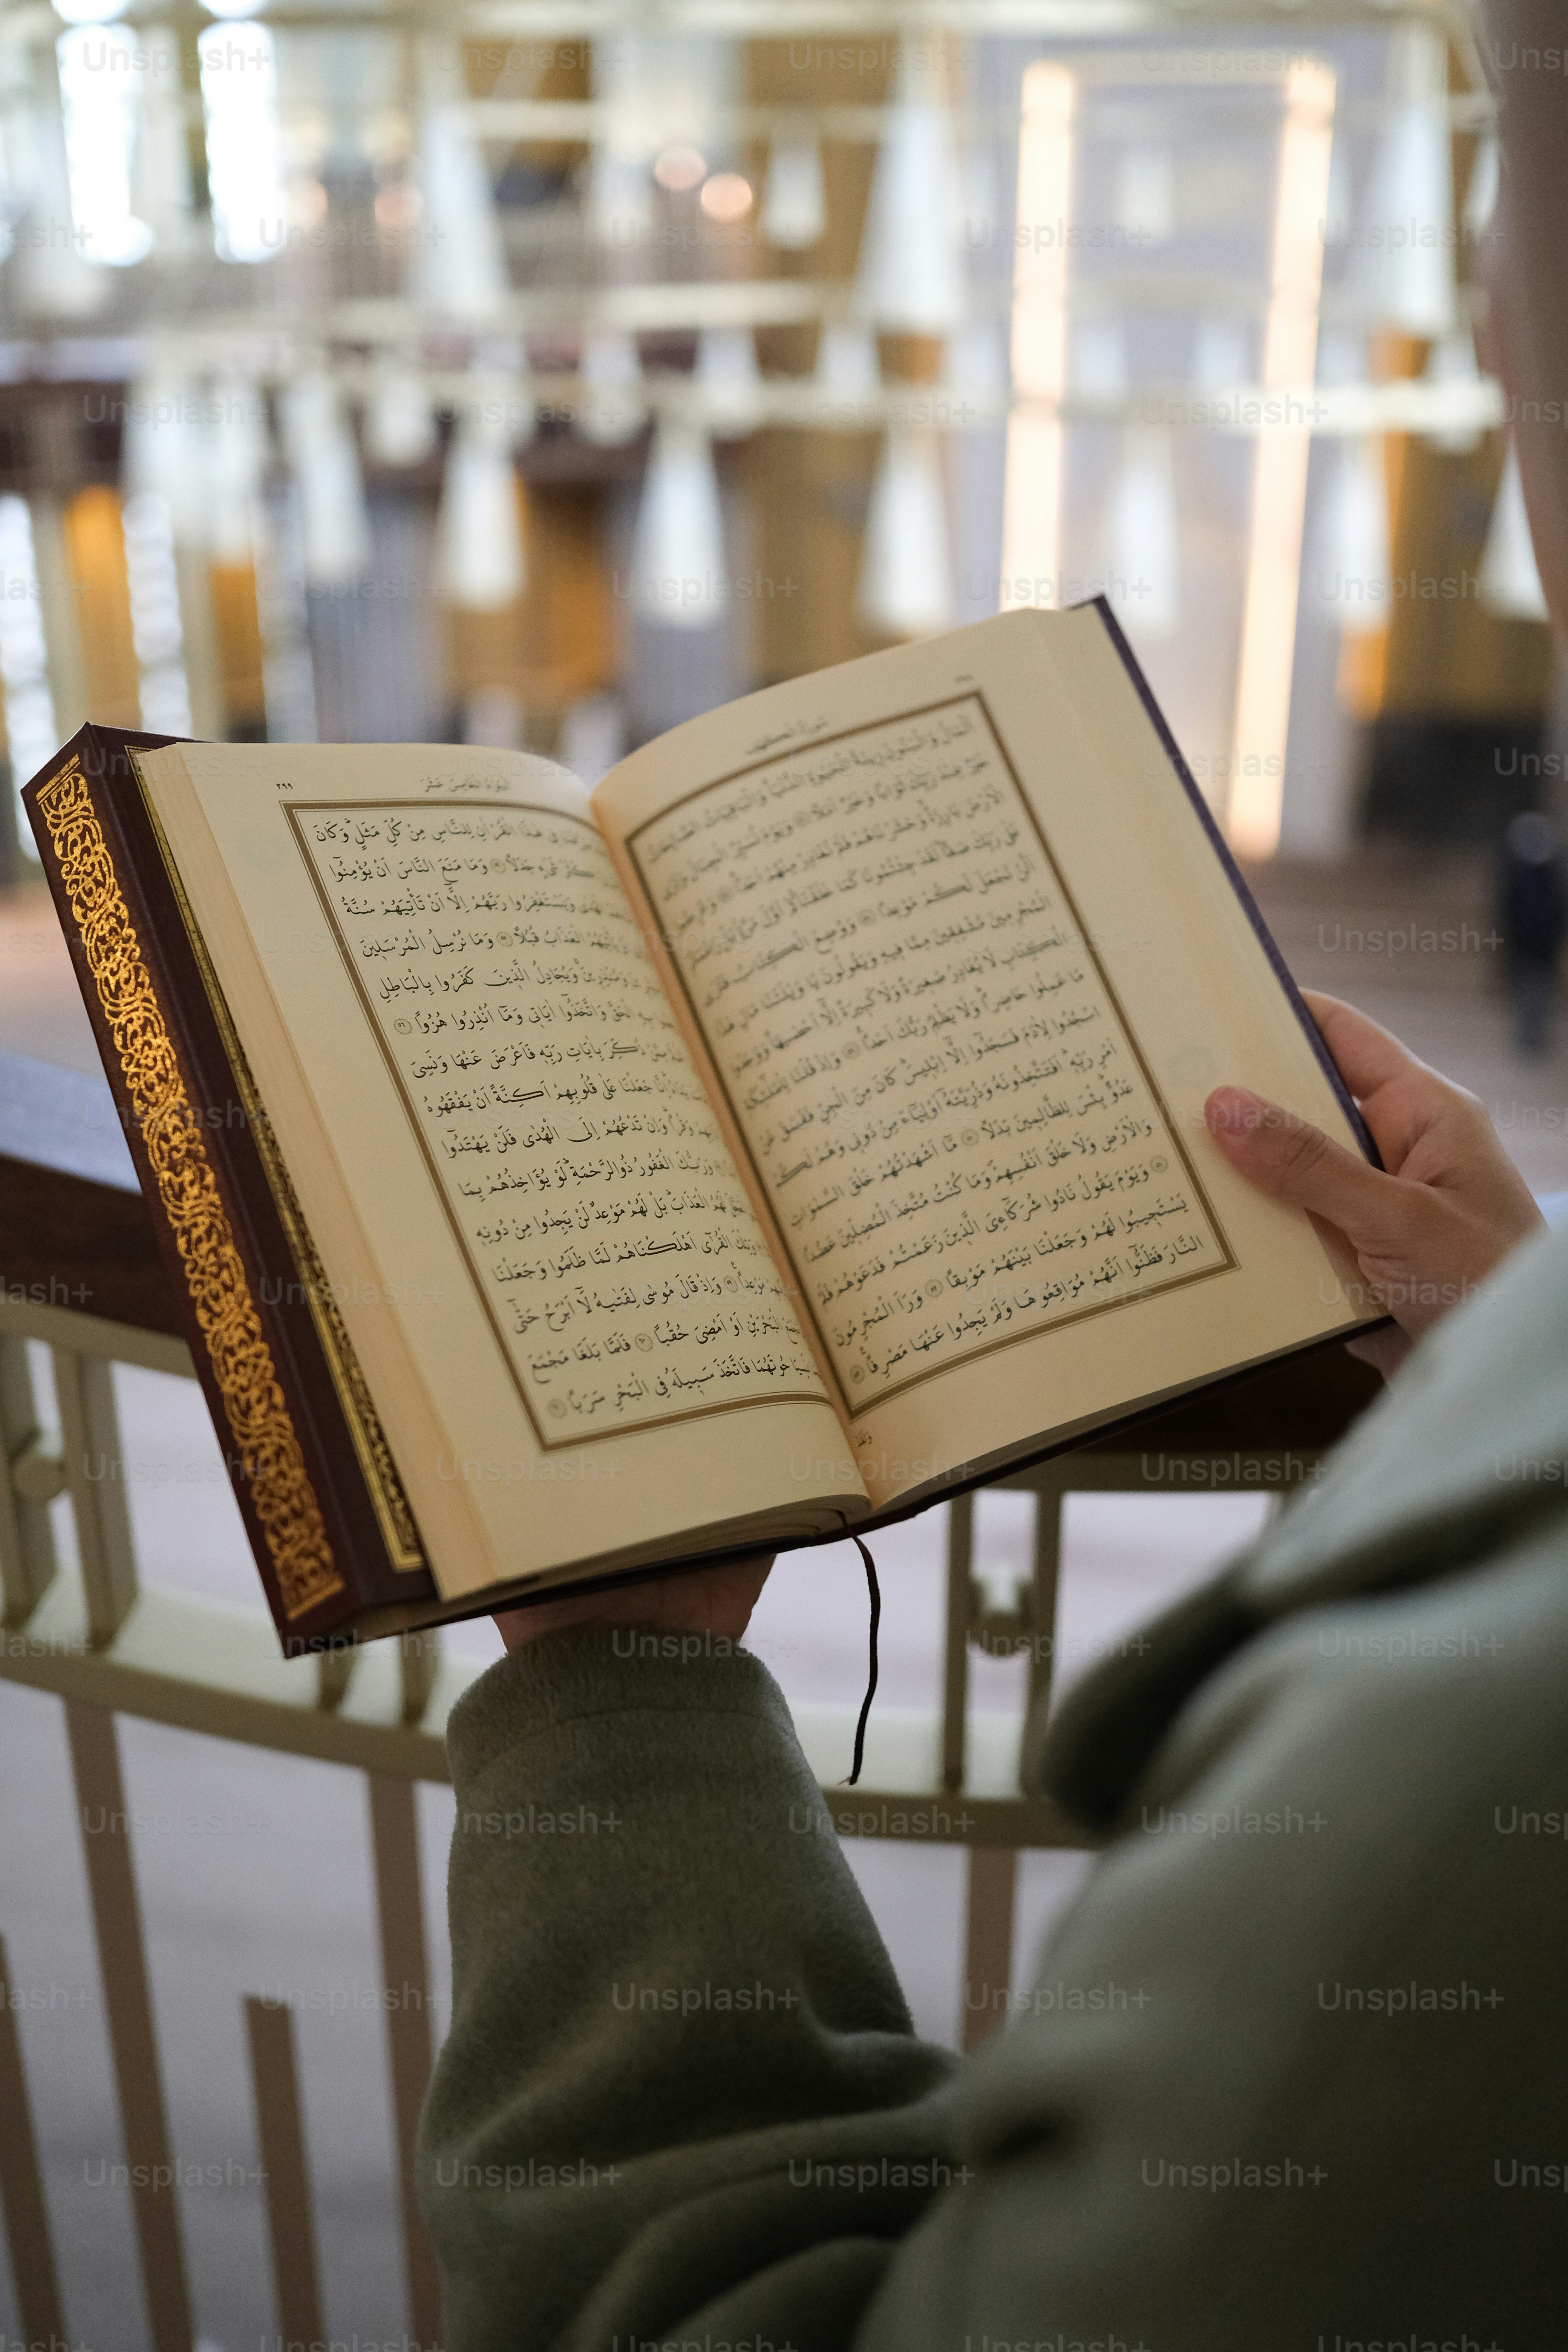 ٢٩٨
سُورَةُ الْكَهْفِ
اَلْمَالُ وَالْبَنُونَ زٖينَةُ الْحَيٰوةِ الدُّنْيَاۚ وَالْبَاقِيَاتُ الصَّالِحَاتُ
خَيْرٌ عِنْدَ رَبِّكَ ثَوَاباً وَخَيْرٌ اَمَلاً ﴿٤٦﴾ وَيَوْمَ نُسَيِّرُ الْجِبَالَ وَتَرَى
الْاَرْضَ بَارِزَةًۙ وَحَشَرْنَاهُمْ فَلَمْ نُغَادِرْ مِنْهُمْ اَحَداًۚ ﴿٤٧﴾ وَعُرِضُوا
عَلٰى رَبِّكَ صَفاًّۜ لَقَدْ جِئْتُمُونَا كَمَا خَلَقْنَاكُمْ اَوَّلَ مَرَّةٍۘ بَلْ زَعَمْتُمْ
اَلَّنْ نَجْعَلَ لَكُمْ مَوْعِداً ﴿٤٨﴾ وَوُضِعَ الْكِتَابُ فَتَرَى
الْمُجْرِمٖينَ مُشْفِقٖينَ مِمَّا فٖيهِ وَيَقُولُونَ يَا وَيْلَتَنَا مَالِ هٰذَا
الْكِتَابِ لَا يُغَادِرُ صَغٖيرَةً وَلَا كَبٖيرَةً اِلَّٓا اَحْصٰيهَاۚ وَوَجَدُوا
مَا عَمِلُوا حَاضِراًۜ وَلَا يَظْلِمُ رَبُّكَ اَحَداً ﴿٤٩﴾ وَاِذْ قُلْنَا لِلْمَلٰٓئِكَةِ
اسْجُدُوا لِاٰدَمَ فَسَجَدُٓوا اِلَّٓا اِبْلٖيسَۜ كَانَ مِنَ الْجِنِّ فَفَسَقَ عَنْ
اَمْرِ رَبِّهٖۜ اَفَتَتَّخِذُونَهُ وَذُرِّيَّتَهُٓ اَوْلِيَٓاءَ مِنْ دُونٖي وَهُمْ لَكُمْ
عَدُوٌّۜ بِئْسَ لِلظَّالِمٖينَ بَدَلاً ﴿٥٠﴾ مَٓا اَشْهَدْتُهُمْ خَلْقَ السَّمٰوَاتِ
وَالْاَرْضِ وَلَا خَلْقَ اَنْفُسِهِمْۖ وَمَا كُنْتُ مُتَّخِذَ الْمُضِلّٖينَ عَضُداً
﴿٥١﴾ وَيَوْمَ يَقُولُ نَادُوا شُرَكَٓاءِيَ الَّذٖينَ زَعَمْتُمْ فَدَعَوْهُمْ فَلَمْ
يَسْتَجٖيبُوا لَهُمْ وَجَعَلْنَا بَيْنَهُمْ مَوْبِقاً ﴿٥٢﴾ وَرَاَ الْمُجْرِمُونَ
النَّارَ فَظَنُّٓوا اَنَّهُمْ مُوَاقِعُوهَا وَلَمْ يَجِدُوا عَنْهَا مَصْرِفاً۟ ﴿٥٣﴾
وَلَقَدْ
٢٩٩
اَلْجُزْءُ الْخَامِسَ عَشَرَ
فٖي هٰذَا الْقُرْاٰنِ لِلنَّاسِ مِنْ كُلِّ مَثَلٍۜ وَكَانَ
جَدَلاً ﴿٥٤﴾ وَمَا مَنَعَ النَّاسَ اَنْ يُؤْمِنُٓوا
وَيَسْتَغْفِرُوا رَبَّهُمْ اِلَّٓا اَنْ تَأْتِيَهُمْ سُنَّةُ
الْعَذَابُ قُبُلاً ﴿٥٥﴾ وَمَا نُرْسِلُ الْمُرْسَلٖينَ
وَمُنْذِرٖينَۚ وَيُجَادِلُ الَّذٖينَ كَفَرُوا بِالْبَاطِلِ
بِهِ الْحَقَّ وَاتَّخَذُٓوا اٰيَاتٖي وَمَٓا اُنْذِرُوا هُزُواً ﴿٥٦﴾
ذُكِّرَ بِاٰيَاتِ رَبِّهٖ فَاَعْرَضَ عَنْهَا وَنَسِيَ
اِنَّا جَعَلْنَا عَلٰى قُلُوبِهِمْ اَكِنَّةً اَنْ يَفْقَهُوهُ
وَقْراًۜ وَاِنْ تَدْعُهُمْ اِلَى الْهُدٰى فَلَنْ يَهْتَدُٓوا
وَرَبُّكَ الْغَفُورُ ذُو الرَّحْمَةِۜ لَوْ يُؤَاخِذُهُمْ بِمَا
لَهُمُ الْعَذَابَۜ بَلْ لَهُمْ مَوْعِدٌ لَنْ يَجِدُوا مِنْ دُونِهٖ
وَتِلْكَ الْقُرٰٓى اَهْلَكْنَاهُمْ لَمَّا ظَلَمُوا وَجَعَلْنَا
مَوْعِداً۟ ﴿٥٩﴾ وَاِذْ قَالَ مُوسٰى لِفَتٰيهُ لَٓا اَبْرَحُ حَتّٰٓى
الْبَحْرَيْنِ اَوْ اَمْضِيَ حُقُباً ﴿٦٠﴾ فَلَمَّا بَلَغَا مَجْمَعَ
حُوتَهُمَا فَاتَّخَذَ سَبٖيلَهُ فِي الْبَحْرِ سَرَباً ﴿٦١﴾
Unsplash+